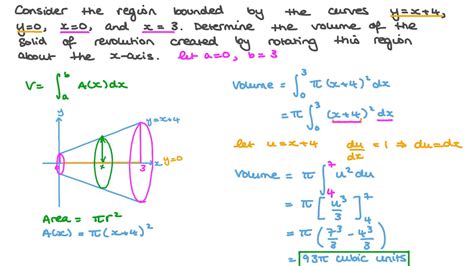 Consider the region bounded by the curves y=x+4,
y=0, x=0, and x = 3. Determine the volume of the
solid of revolution created by rotating this region
about the x-axis. let a=0, b=3
V= ∫_a^b A(x)dx
y
y=x+4
0
x
3
x
y=0
Area = πr²
A(x)=π(x+4)²
Volume = ∫_0^3 π(x+4)² dx
= π∫_0^3 (x+4)² dx
let u=x+4 du/dx = 1 ⇒ du=dx
Volume = π ∫_4^7 u² du
= π [u³/3]_4^7
= π (7³/3 - 4³/3)
= 93π cubic units